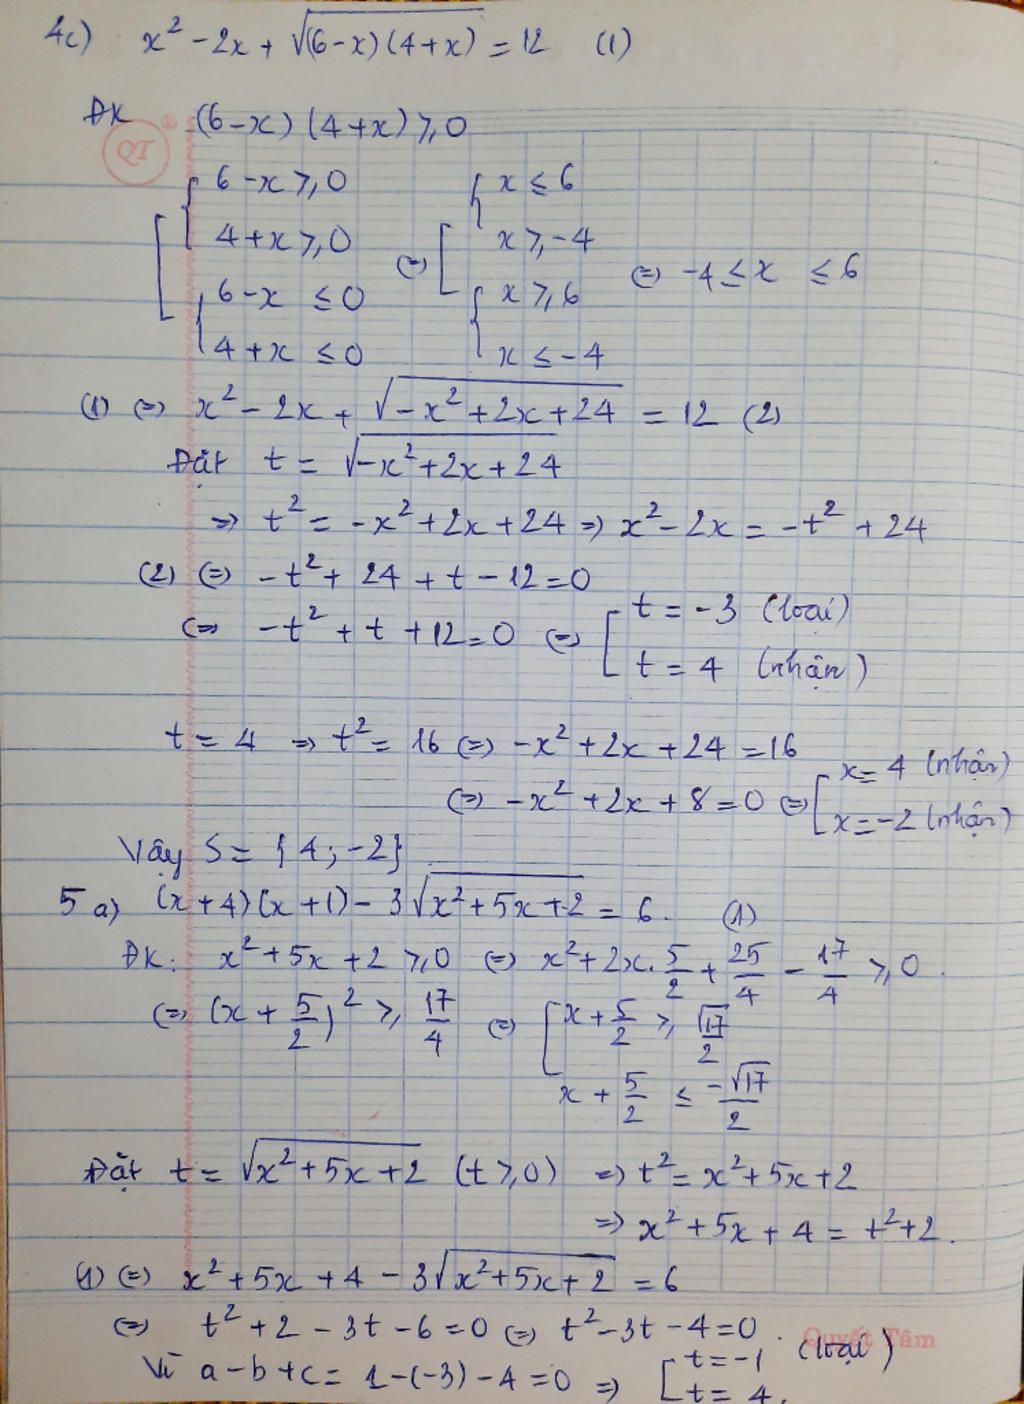 4c) x² - 2x + √(6-x)(4+x) = 12 (1)
ĐK (6-x)(4+x) ≥ 0
QT
[ { 6-x ≥ 0 ⇔ [ { x ≤ 6
4+x ≥ 0 x ≥ -4
⇔ -4 ≤ x ≤ 6
{ 6-x ≤ 0 { x ≥ 6
4+x ≤ 0 x ≤ -4
(1) ⇔ x² - 2x + √-x²+2x+24 = 12 (2)
Đặt t = √-x²+2x+24
⇒ t² = -x²+2x+24 ⇒ x²-2x = -t² + 24
(2) ⇔ -t² + 24 + t - 12 = 0
⇔ -t² + t + 12 = 0 ⇔ [ t = -3 (loại)
t = 4 (nhận)
t = 4 ⇒ t² = 16 ⇔ -x² + 2x + 24 = 16
⇔ -x² + 2x + 8 = 0 ⇔ [ x = 4 (nhận)
x = -2 (nhận)
Vậy S = {4; -2}
5 a) (x+4)(x+1) - 3√x²+5x+2 = 6. (1)
ĐK: x²+5x+2 ≥ 0 ⇔ x²+2x.5/2 + 25/4 - 17/4 ≥ 0.
⇔ (x + 5/2)² ≥ 17/4 ⇔ [ x + 5/2 ≥ √17/2
x + 5/2 ≤ -√17/2
Đặt t = √x²+5x+2 (t ≥ 0) ⇒ t² = x²+5x+2
⇒ x²+5x+4 = t²+2.
(1) ⇔ x²+5x+4 - 3√x²+5x+2 = 6
⇔ t²+2 - 3t - 6 = 0 ⇔ t²-3t-4 = 0.
Quyết Tâm
Vì a-b+c = 1-(-3)-4 = 0 ⇒ [ t = -1 (loại)
t = 4.